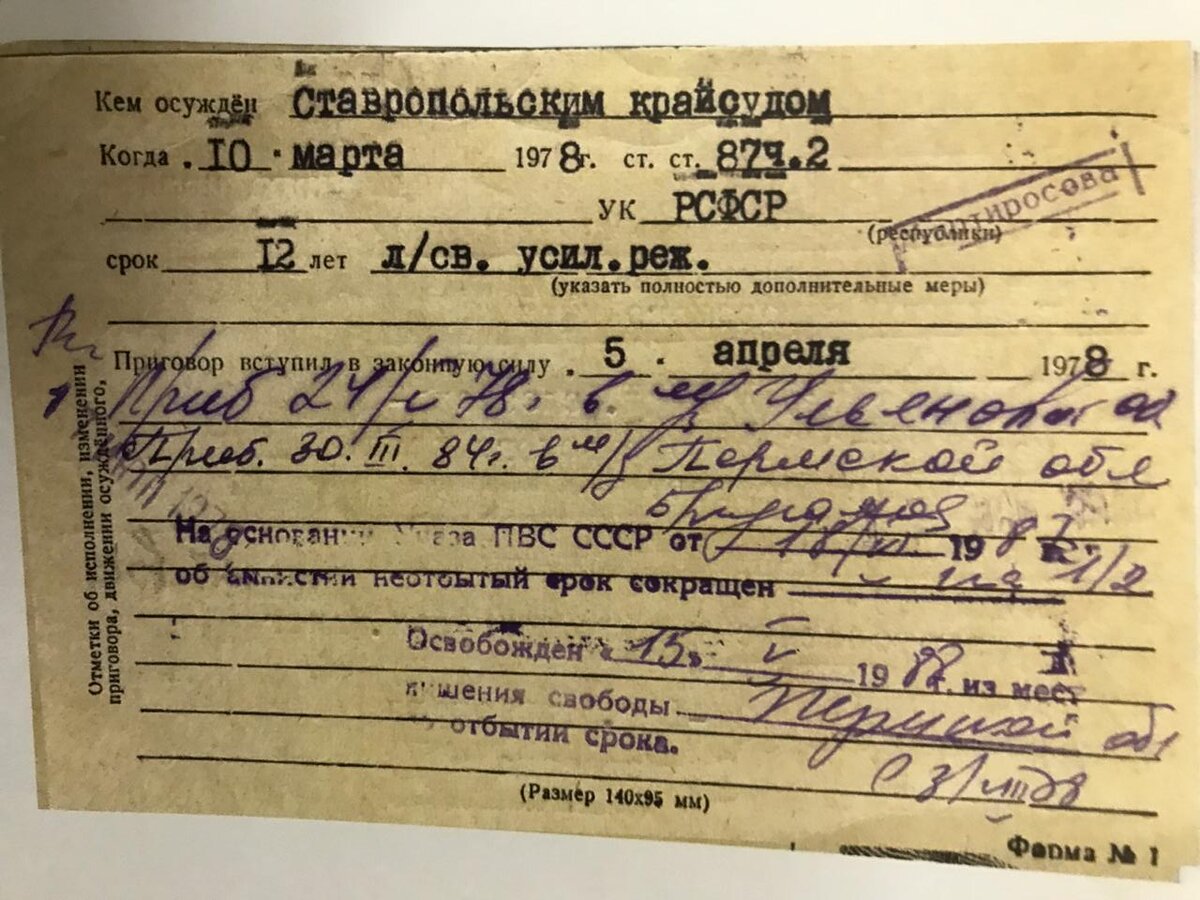 Кем осуждён Ставропольским крайсудом
Когда 10 марта 1978г. ст. ст. 87ч.2
УК РСФСР
(республики)
срок 12 лет л/св. усил.реж.
(указать полностью дополнительные меры)
Приговор вступил в законную силу 5 апреля 1978 г.
Приб 24/ 78г. в
Приб. 30.III.84г. в м/з Пермской обл
На основании Указа ПВС СССР от 18/VI. 1987г.
об амнистии неотбытый срок сокращен на 1/2
Освобожден «15» V 1988 г. из мест
лишения свободы Пермской обл
отбытии срока.
(Размер 140х95 мм)
Форма № 1
Отметки об исполнении, изменении
приговора, движении осуждённого,